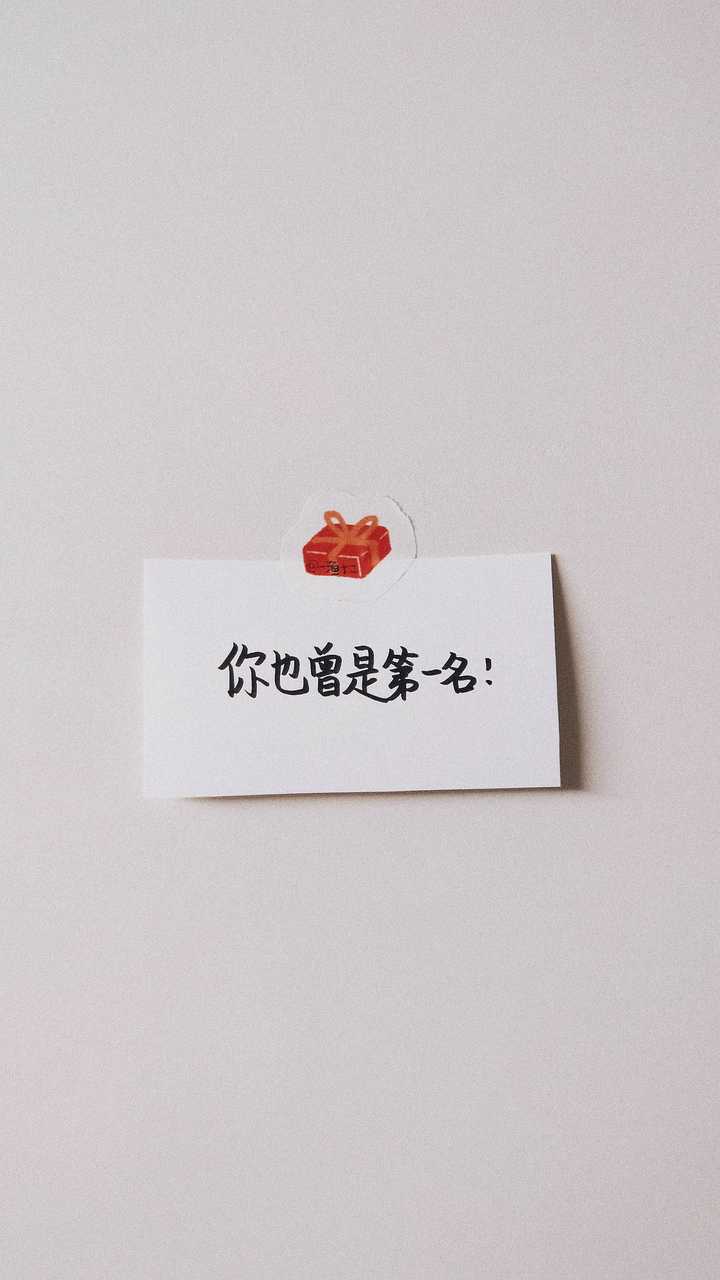 你也曾是第一名!